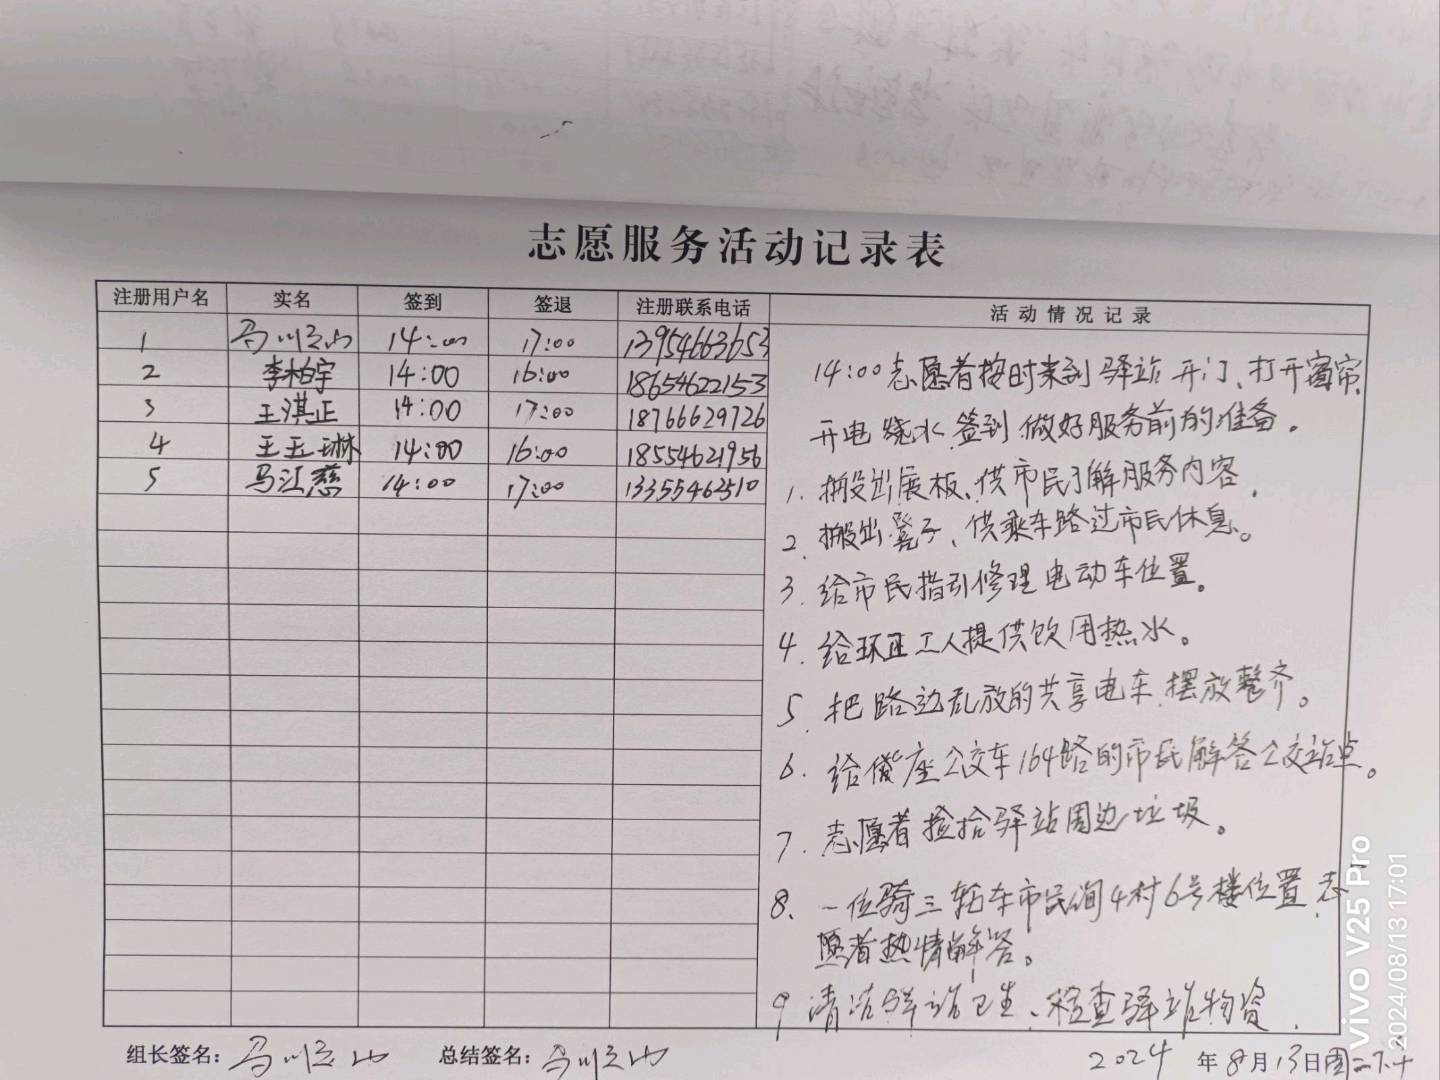 志愿服务活动记录表
注册用户名 实名 签到 签退 注册联系电话 活动情况记录
1 马川立山 14:00 17:00 13954663653
2 李柏宇 14:00 16:00 18654622153
3 王淇正 14:00 17:00 18766629726
4 王玉琳 14:00 16:00 18554621956
5 马江慈 14:00 17:00 13355462510
14:00志愿者按时来到驿站开门、打开窗帘.
开电烧水签到做好服务前的准备。
1. 搬出展板、供市民了解服务内容.
2. 搬出凳子、供乘车路过市民休息。
3. 给市民指引修理电动车位置。
4. 给环卫工人提供饮用热水。
5. 把路边乱放的共享电车摆放整齐。
6. 给候座公交车164路的市民解答公交站点。
7. 志愿者捡拾驿站周边垃圾。
8、一位骑三轮车市民询4村6号楼位置,志
愿者热情解答。
9 清洁驿站卫生、检查驿站物资.
组长签名：马川立山 总结签名：马川立山 2024年8月13日周二下午
vivo V25 Pro
2024/08/13 17:01